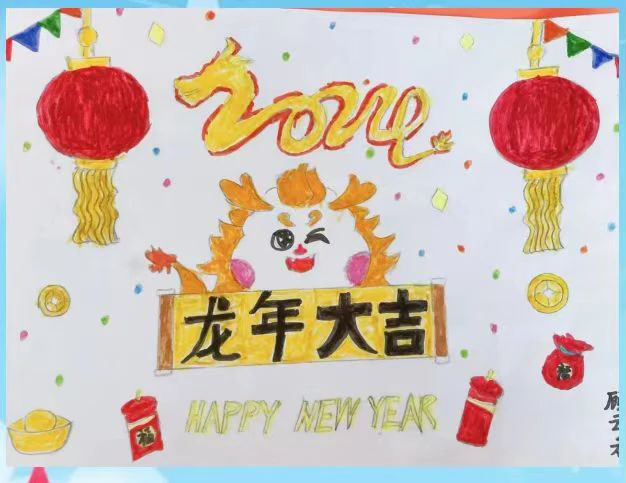 2024
龙年大吉
HAPPY NEW YEAR
福
福